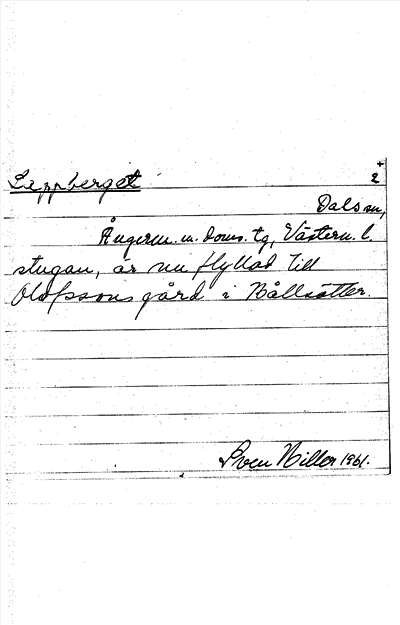 Lappberget
+
2
Dals sn,
Ångerm. m. doms. tg, Västern. l.
stugan, är nu flyttad till
Olofssons gård i Hållsätter.
Sven Hiller 1961.